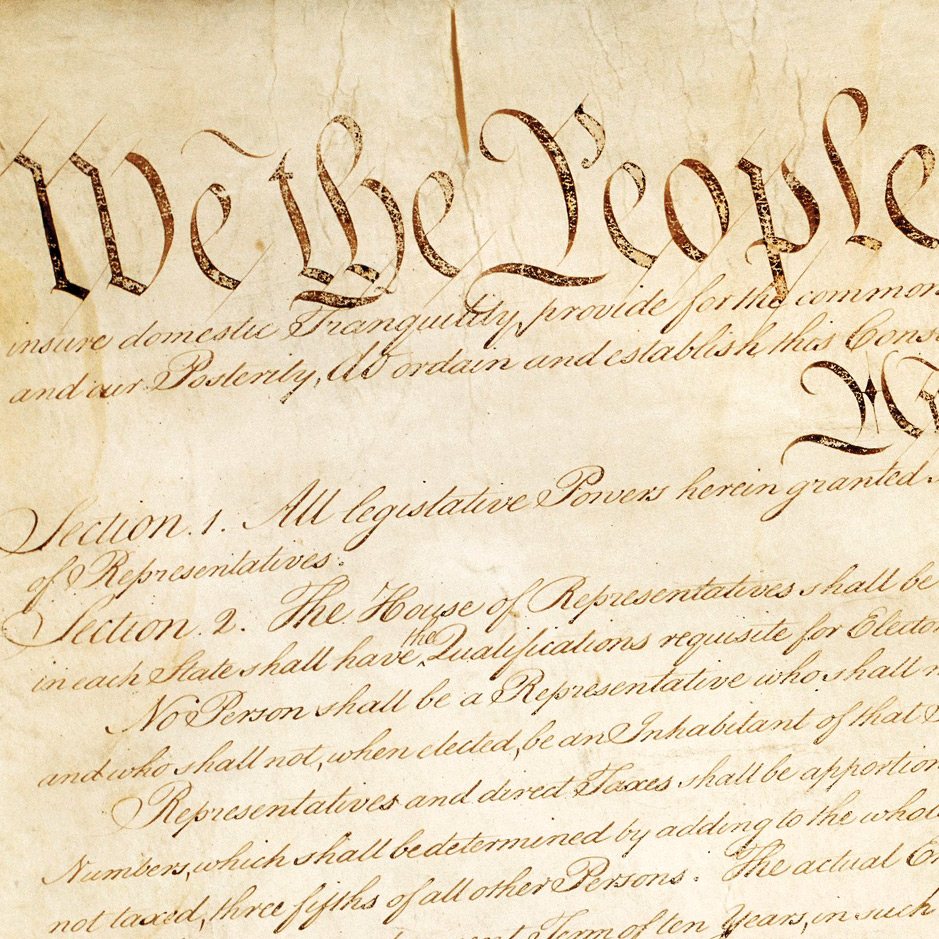 We the People
insure domestic Tranquility, provide for the common
and our Posterity, do ordain and establish this Cons
Section. 1. All legislative Powers herein granted
of Representatives.
Section. 2. The House of Representatives shall be
in each State shall have the Qualifications requisite for Elector
No Person shall be a Representative who shall n
and who shall not, when elected, be an Inhabitant of that
Representatives and direct Taxes shall be apportion
Numbers, which shall be determined by adding to the whol
not taxed, three fifths of all other Persons. The actual En
ent Term of ten Years, in such